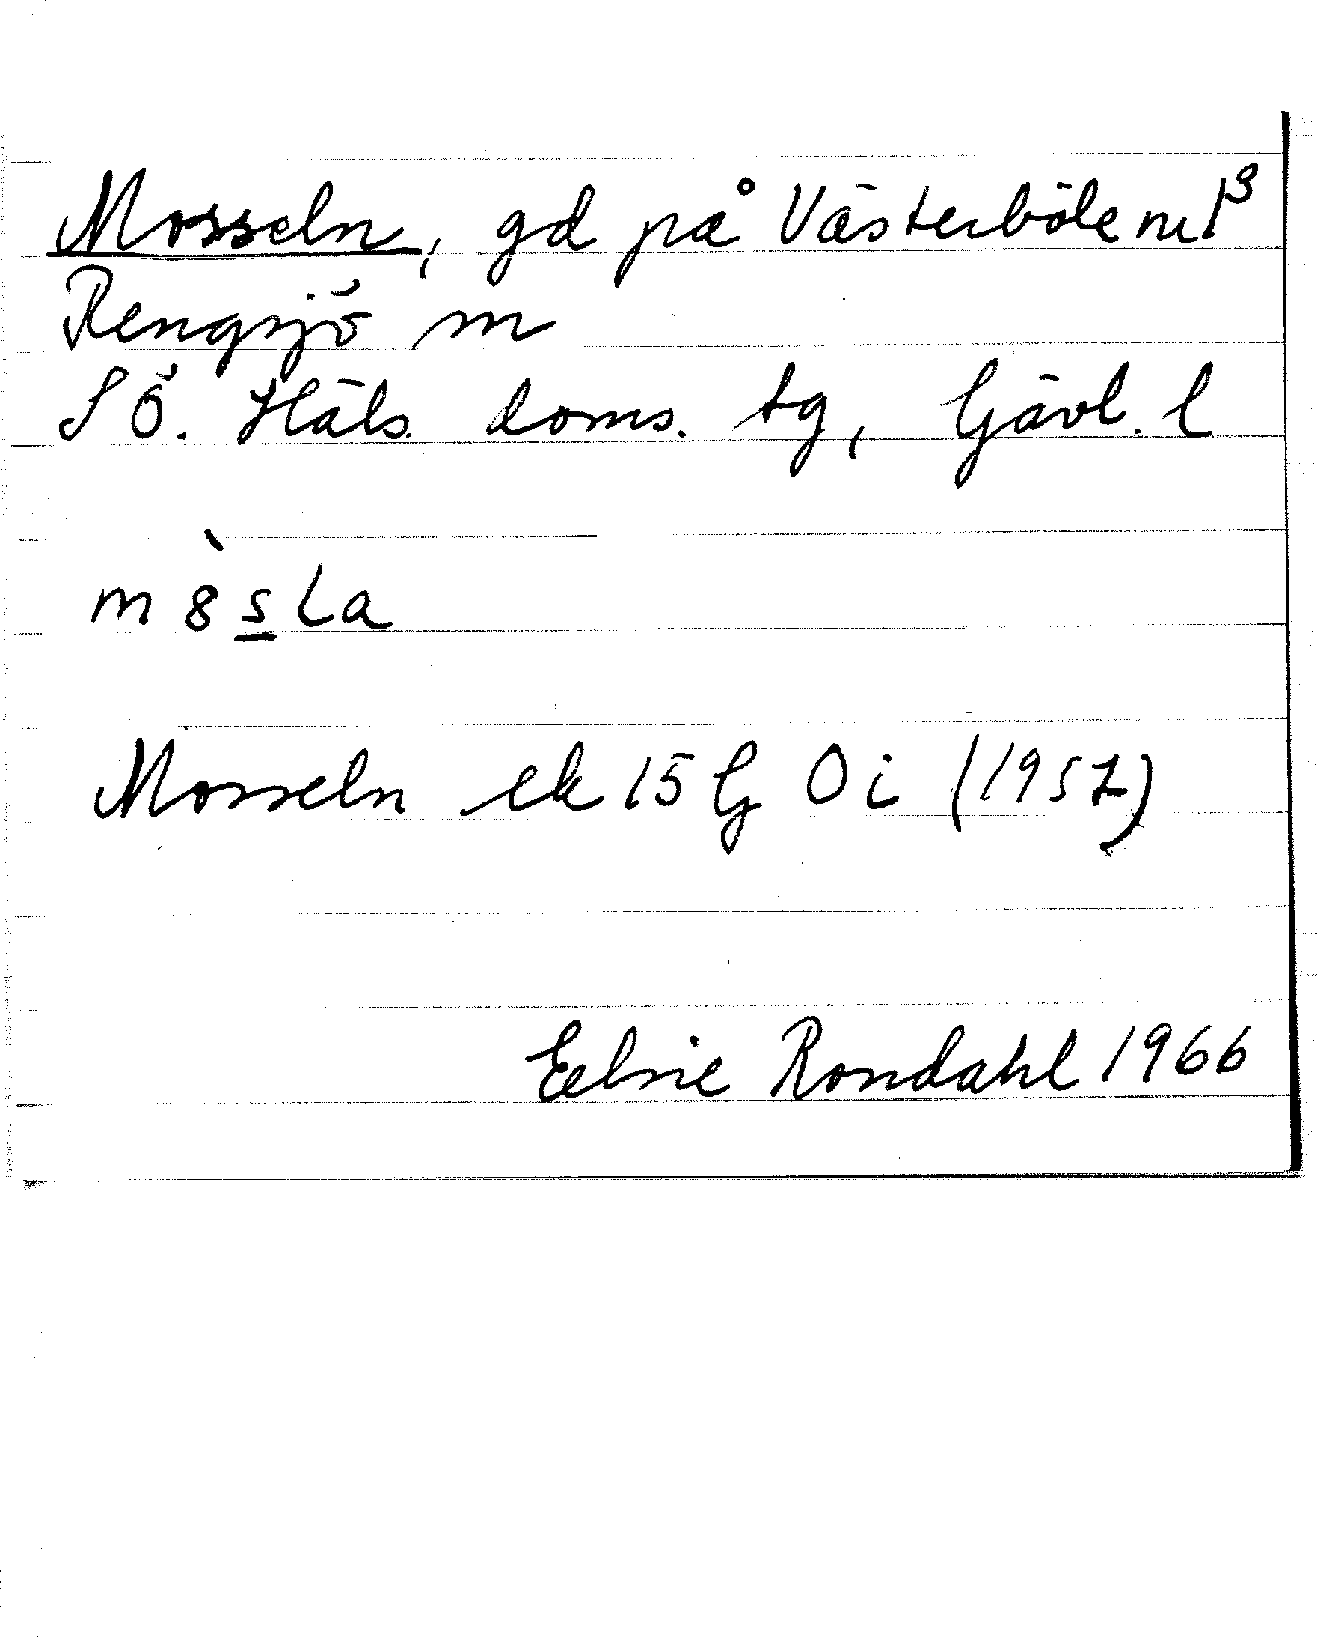 Mosseln, gd på Västerböle nr 1³
Rengsjö sn
SÖ. Häls. doms. tg, Gävl. l
m8̀s̲la
Mosseln ek 15 G 0 i (1957)
Elsie Rondahl 1966